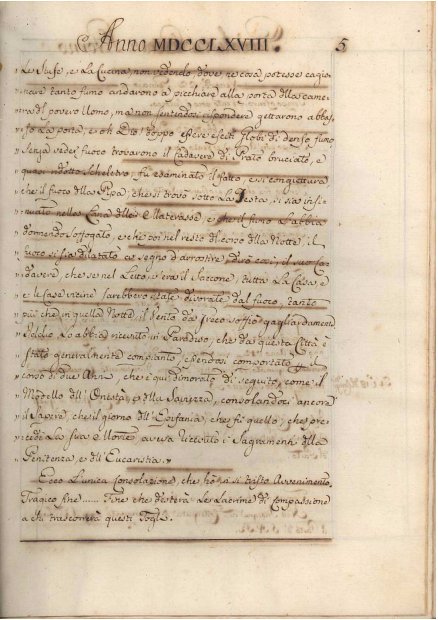 Anno MDCCLXVIII. 5
Le Stufe, e La Cucina, non vedendo dove ne cosa potesse cagio-
nare tanto fumo andarono a picchiare alla porta dlla came-
ra dl povero Uomo, ma non sentendosi rispondere gettarono abbas-
so La porta, e oh Dio! doppo essere esciti globi di denso fumo
senza veder fuoco trovarono il Cadavere di Prato bruciato, e
quasi ridotto Scheletro, fu esaminato il fatto, e si congettura
che il fuoco dlla Pipa, che si trovò sotto La Testa, si sia insi-
nuato nella Lana dlle Materasse, e che il fumo L'abbia
dormendo soffogato, e che poi nel resto dl corso dlla Notte, il
fuoco si sia dilatato a segno d'arrostire così il suo Ca-
davere, che se nel Letto, v'era il Saccone, tutta La Casa, e
e le Case vicine sarebbero state divorate dal fuoco, tanto
più che in quella Notte, il Vento da Greco soffiò gagliardamente
Iddio Lo abbia ricevuto in Paradiso, che da questa Città è
stato generalmente compianto, essendosi comportato, p il
corso di due Anni, che è qui dimorato di seguito, come il
Modello dll' Onestà, e dlla Saviezza, consolandoci ancora
il Sapere, che il giorno dll' Epifania, che fù quello, che pre-
cedè La sua Morte, aveva ricevuto i Sagramenti dlla
Penitenza, e dll' Eucaristia.
Ecco L'unica Consolazione, che hà un si tristo Avvenimento,
Tragico fine...... Fine che desterà Le Lacrime di Compassione
a chi trascorrerà questi Fogli.